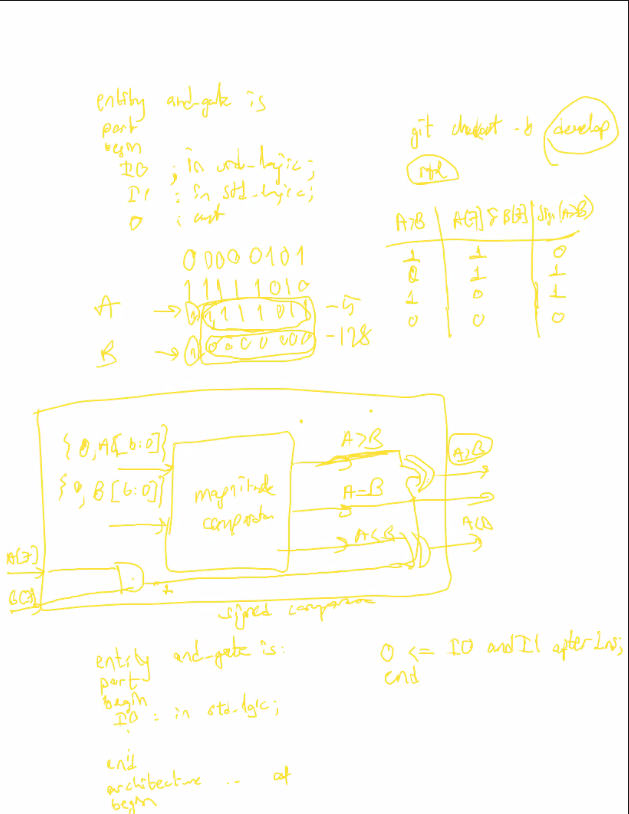 entity and-gate is
port
begin
I0 : in std-logic;
I1 : in std-logic;
O : out
git checkout -b develop
A>B | A[7] & B[7] | Sign(A>B)
1 1 0
0 1 1
1 0 1
0 0 0
0000 0101
1111 1010
A → 1 1111011 -5
B → 1 0000000 -128
{0, A[6:0]}
{0, B[6:0]}
magnitude
comparator
A>B
A=B
A<B
A>B
A<B
A[7]
B[7]
signed comparator
entity and-gate is:
port
begin
I0 : in std-logic;
:
end
architecture .. of
begin
O <= I0 and I1 after 1ns;
end